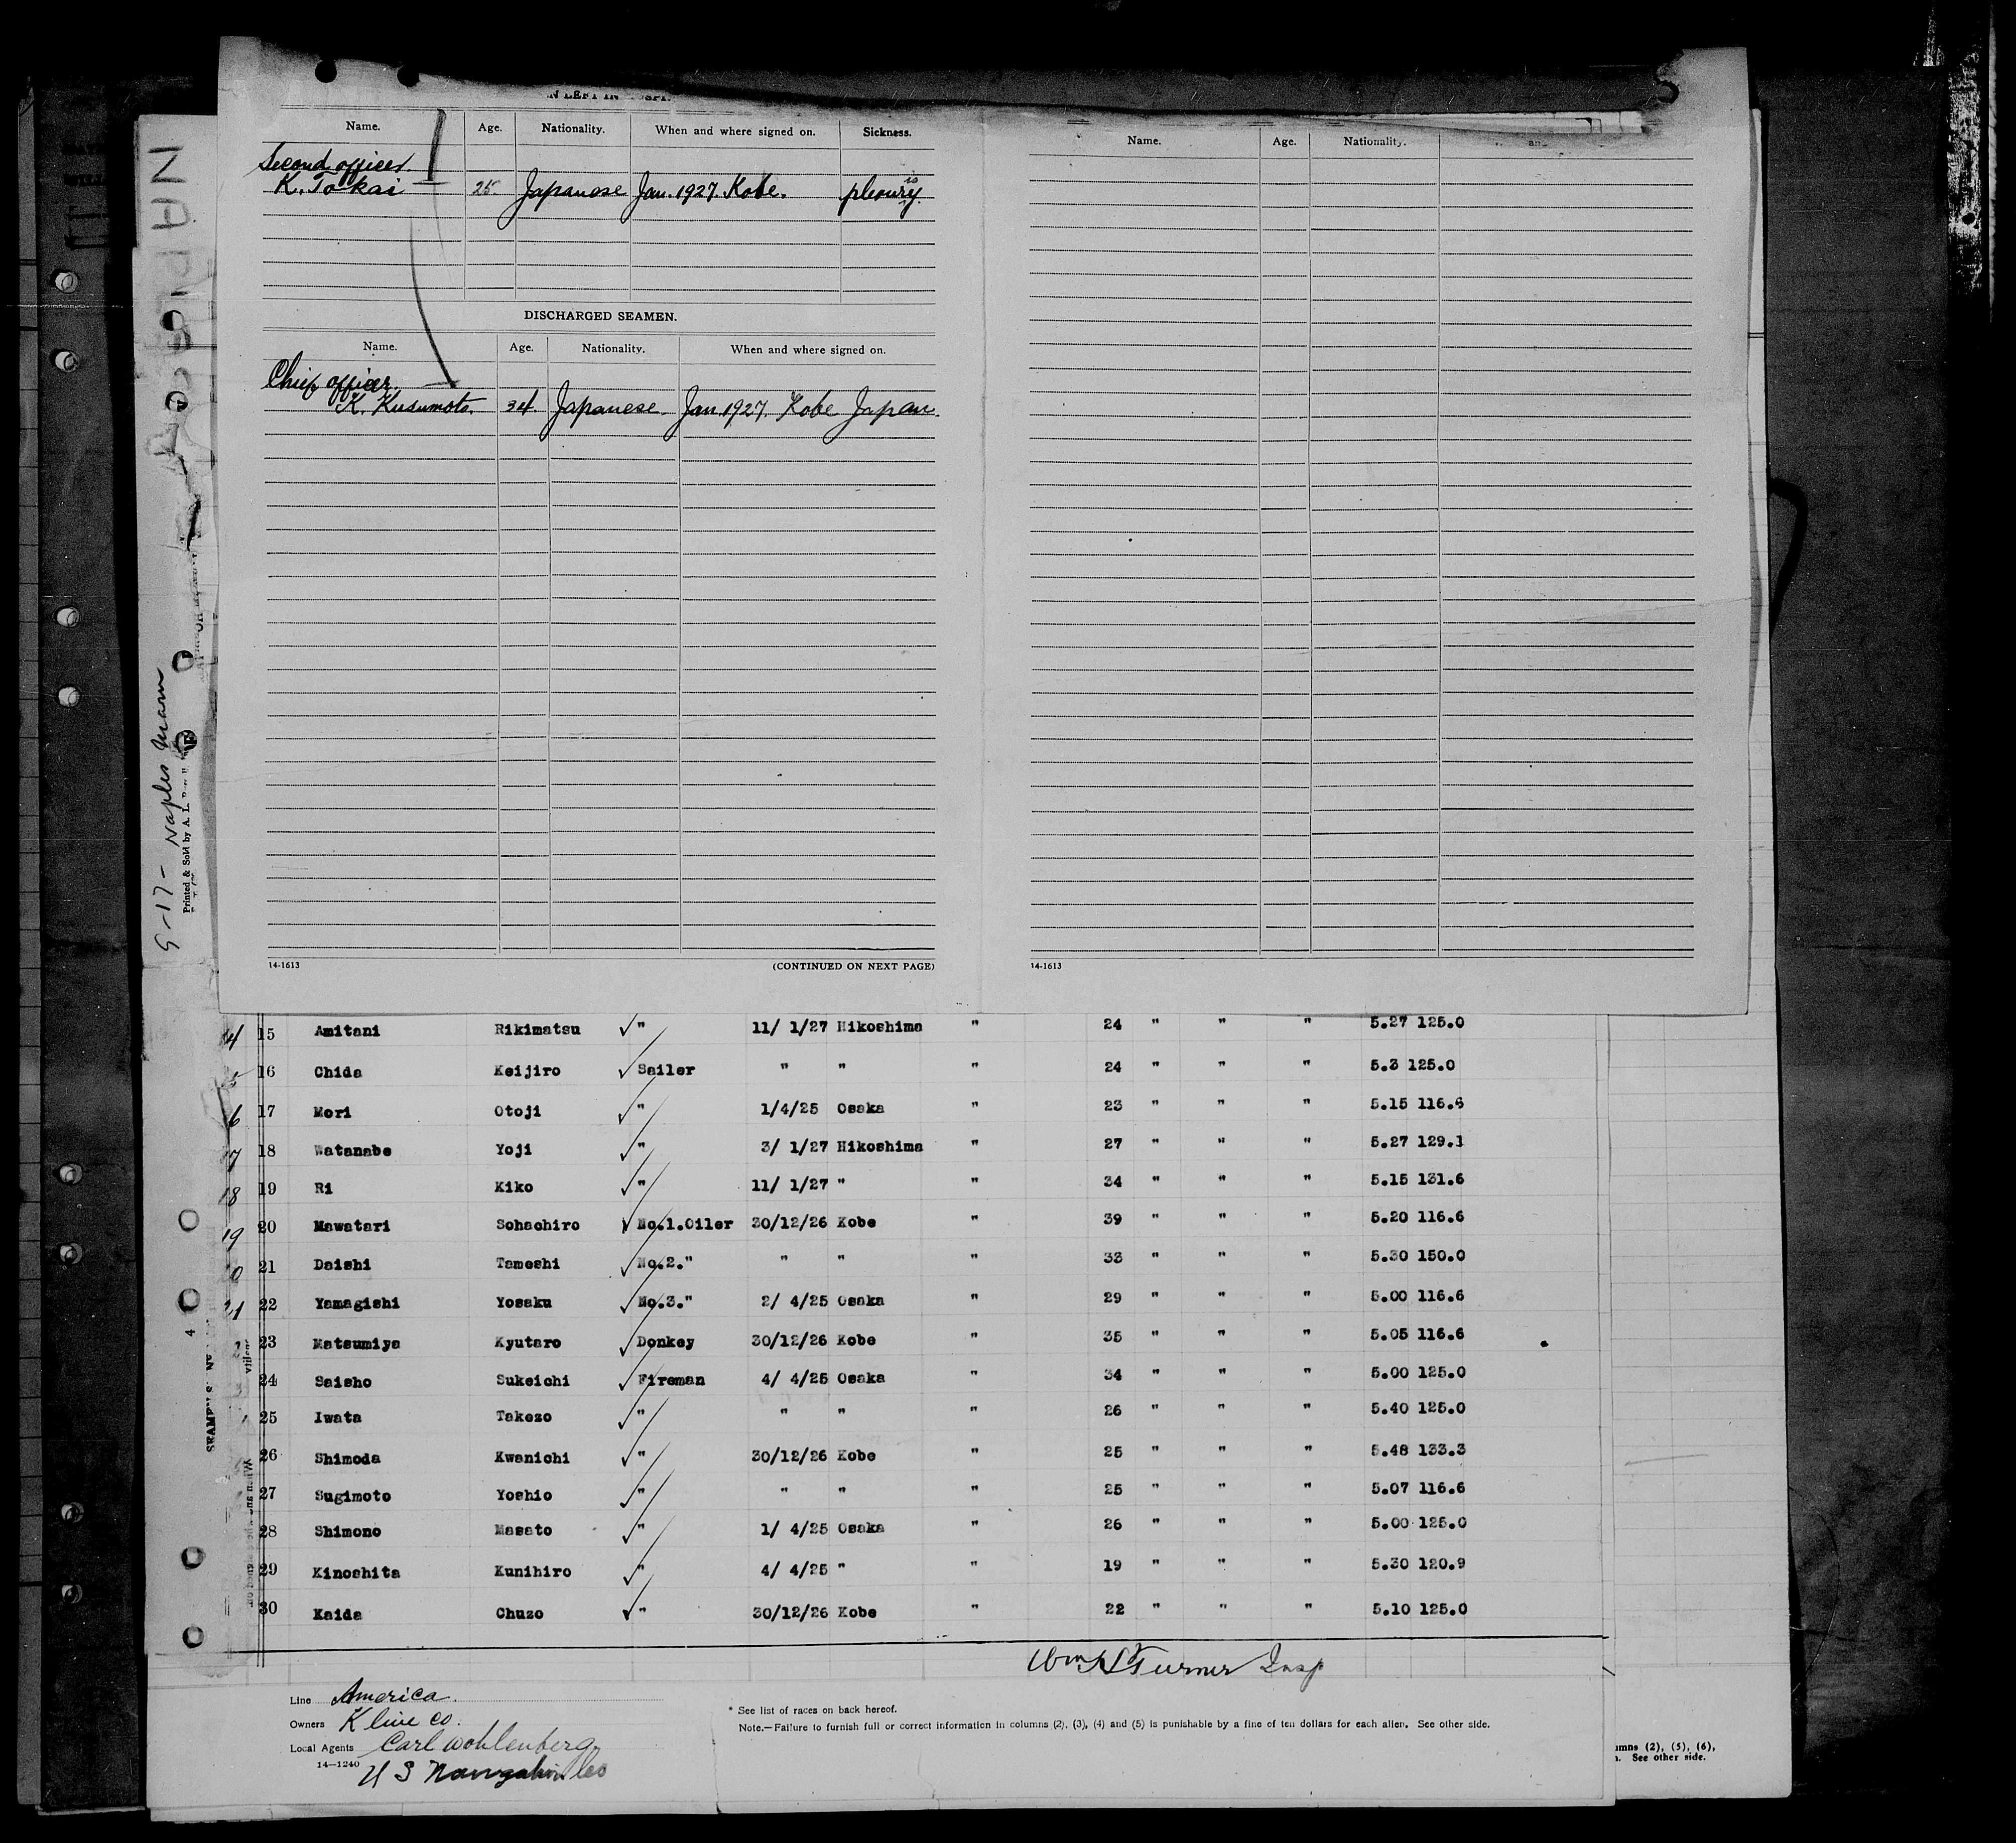 Name. Age. Nationality. When and where signed on. Sickness.
Second officer.
K. Tokai 25. Japanese Jan. 1927. Kobe.
DISCHARGED SEAMEN.
Name. Age. Nationality. When and where signed on.
Chief officer.
K. Kusumoto. 34. Japanese. Jan. 1927. Kobe Japan.
14-1613 (CONTINUED ON NEXT PAGE)
Name. Age. Nationality.
14-1613
15 Amitani Rikimatsu " 11/ 1/27 Hikoshima " 24 " " " 5.27 125.0
16 Chida Keijiro Sailer " " " 24 " " " 5.3 125.0
17 Mori Otoji " 1/4/25 Osaka " 23 " " " 5.15 116.6
18 Watanabe Yoji " 3/ 1/27 Hikoshima " 27 " " " 5.27 129.1
19 Ri Kiko " 11/ 1/27 " " 34 " " " 5.15 131.6
20 Mawatari Sohachiro No.1.Oiler 30/12/26 Kobe " 39 " " " 5.20 116.6
21 Daishi Tameshi No.2." " " " 33 " " " 5.30 150.0
22 Yamagishi Yosaku No.3." 2/ 4/25 Osaka " 29 " " " 5.00 116.6
23 Matsumiya Kyutaro Donkey 30/12/26 Kobe " 35 " " " 5.05 116.6
24 Saisho Sukeichi Fireman 4/ 4/25 Osaka " 34 " " " 5.00 125.0
25 Iwata Takezo " " " " 26 " " " 5.40 125.0
26 Shimoda Kwanichi " 30/12/26 Kobe " 25 " " " 5.48 133.3
27 Sugimoto Yoshio " " " " 25 " " " 5.07 116.6
28 Shimono Masato " 1/ 4/25 Osaka " 26 " " " 5.00 125.0
29 Kinoshita Kunihiro " 4/ 4/25 " " 19 " " " 5.30 120.9
30 Kaida Chuzo " 30/12/26 Kobe " 22 " " " 5.10 125.0
Turner Insp
Line America.
Owners K line co.
Local Agents Carl Wohlenberg
14—1240 U S
* See list of races on back hereof.
Note.—Failure to furnish full or correct information in columns (2), (3), (4) and (5) is punishable by a fine of ten dollars for each alien. See other side.
(2), (5), (6),
See other side.
Naples Maru
Printed & Sold by A. L.